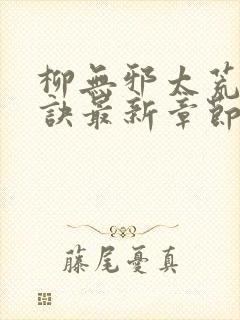 柳無邪太荒
訣最新章節
藤尾憂真